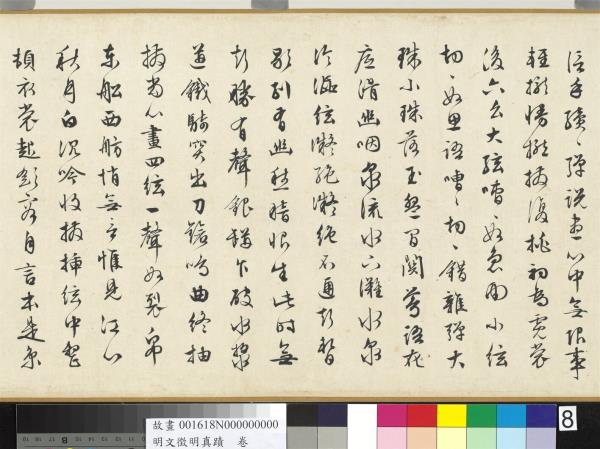 信手續〻彈說盡心中無限事
輕攏慢撚抹復挑初為霓裳
後六幺大絃嘈〻如急雨小絃
切〻如思語嘈〻切〻錯雜彈大
珠小珠落玉盤間關鶯語花
底滑幽咽泉流水下灘水泉
冷澁絃凝絕凝絕不通聲暫
歇別有幽愁暗恨生此時無
聲勝有聲銀瓶乍破水漿
迸鐵騎突出刀鎗鳴曲終抽
撥當心畫四絃一聲如裂帛
東船西舫悄無言惟見江心
秋月白沉吟收撥插絃中整
頓衣裳起斂容自言本是京
故畫 001618N000000000
明文徵明真蹟 卷
8